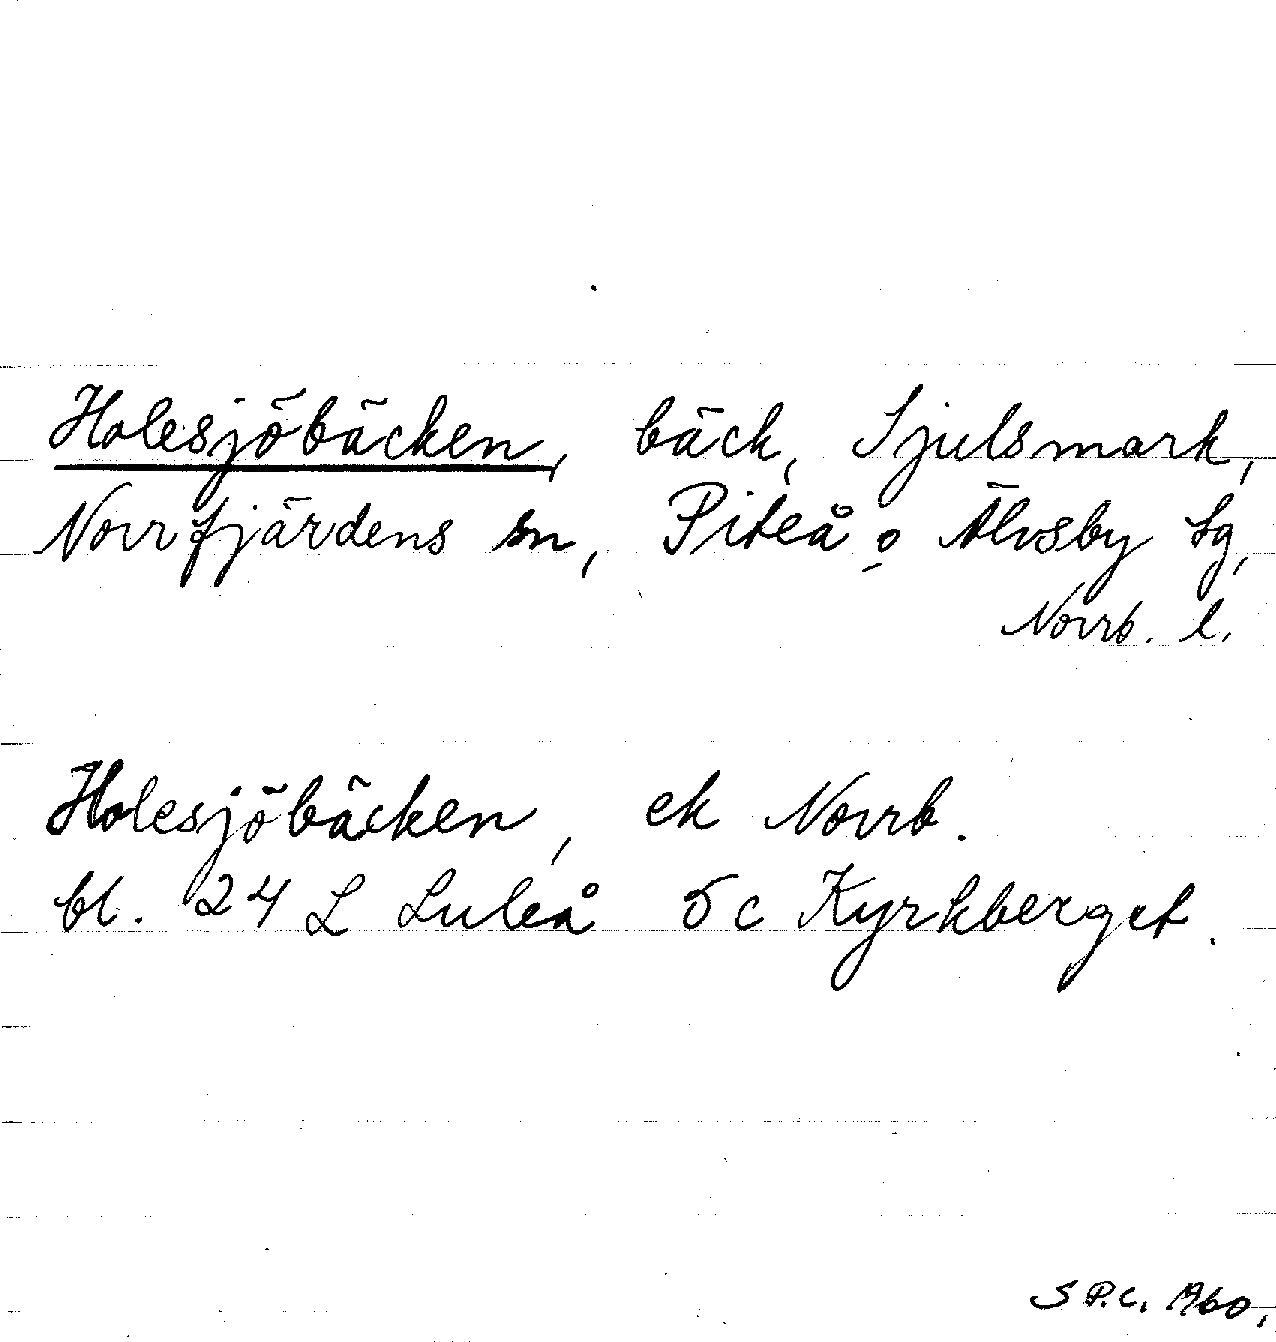 Holesjöbäcken, bäck, Sjulsmark,
Norrfjärdens sn, Piteå o Älvsby tg,
Norrb. l.
Holesjöbäcken, ek Norrb.
bl. 24 L Luleå 5c Kyrkberget.
S P.C. 1960.